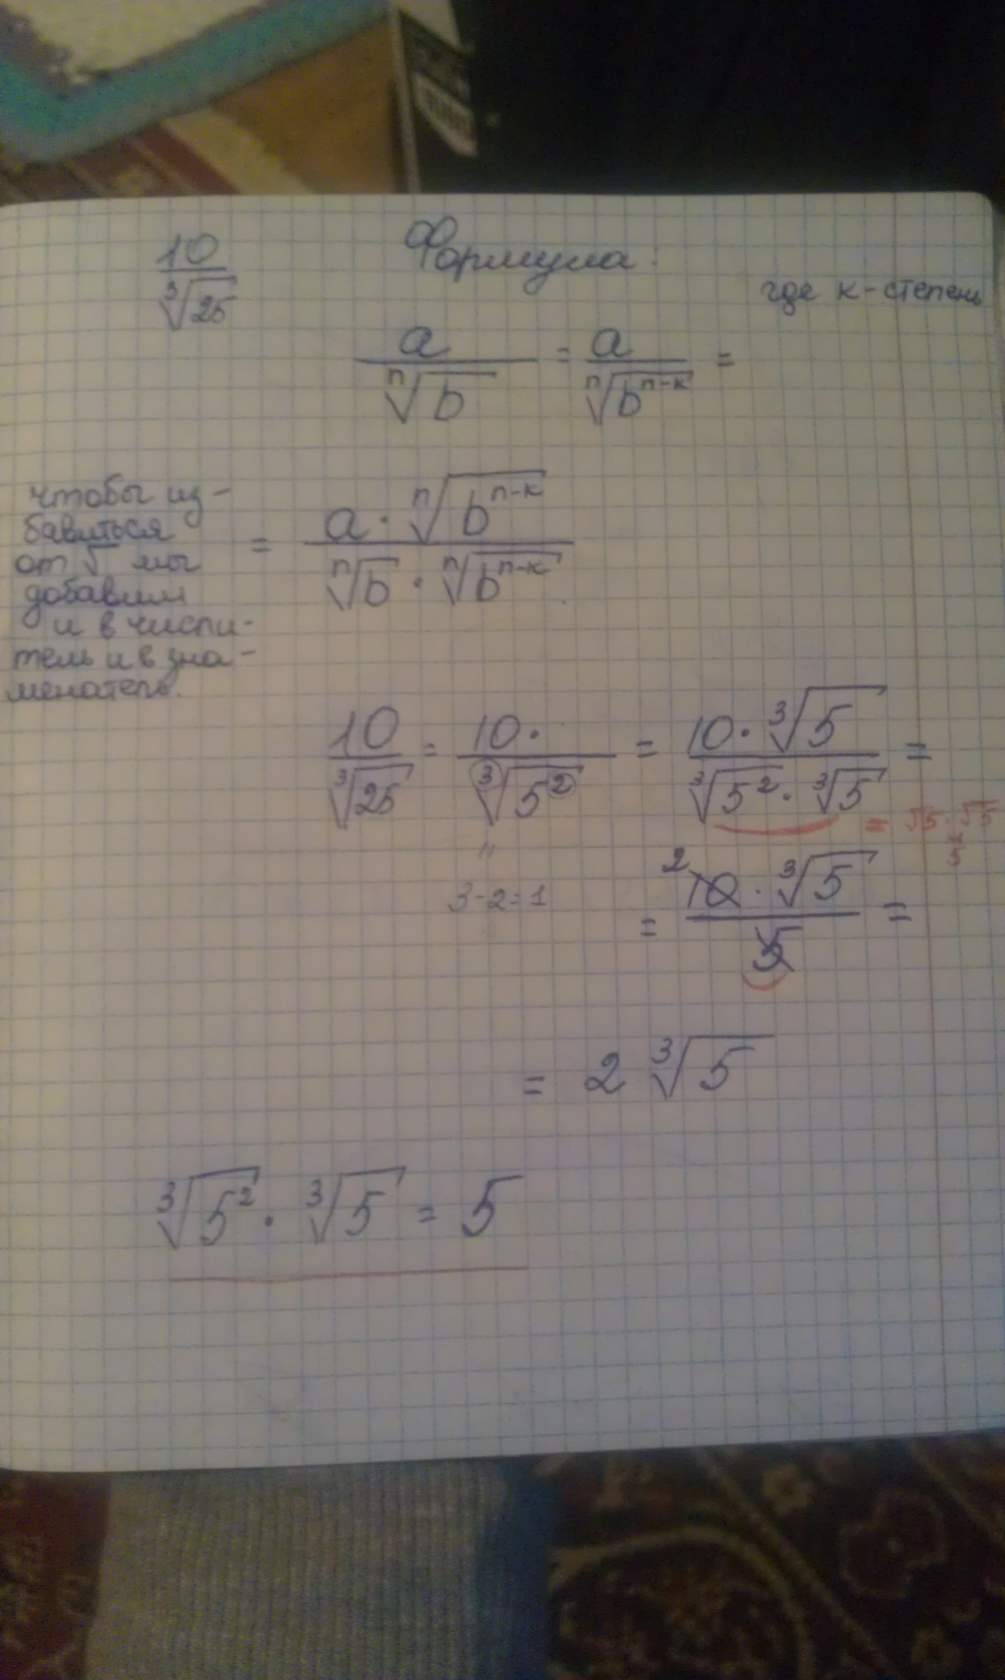 10/∛25
Формула:
где к-степень
a/ⁿ√b = a/ⁿ√(bⁿ⁻ᵏ) =
чтобы из-
бавиться
от √ мы
добавим
и в числи-
тель и в зна-
менатель.
= (a · ⁿ√(bⁿ⁻ᵏ))/(ⁿ√b · ⁿ√(bⁿ⁻ᵏ))
10/∛25 = 10·/∛(5²) = (10 · ∛5)/(∛(5²) · ∛5) =
= √5 · √5
"
3-2=1
= (2 10 · ∛5)/5 =
= 2 ∛5
∛(5²) · ∛5 = 5